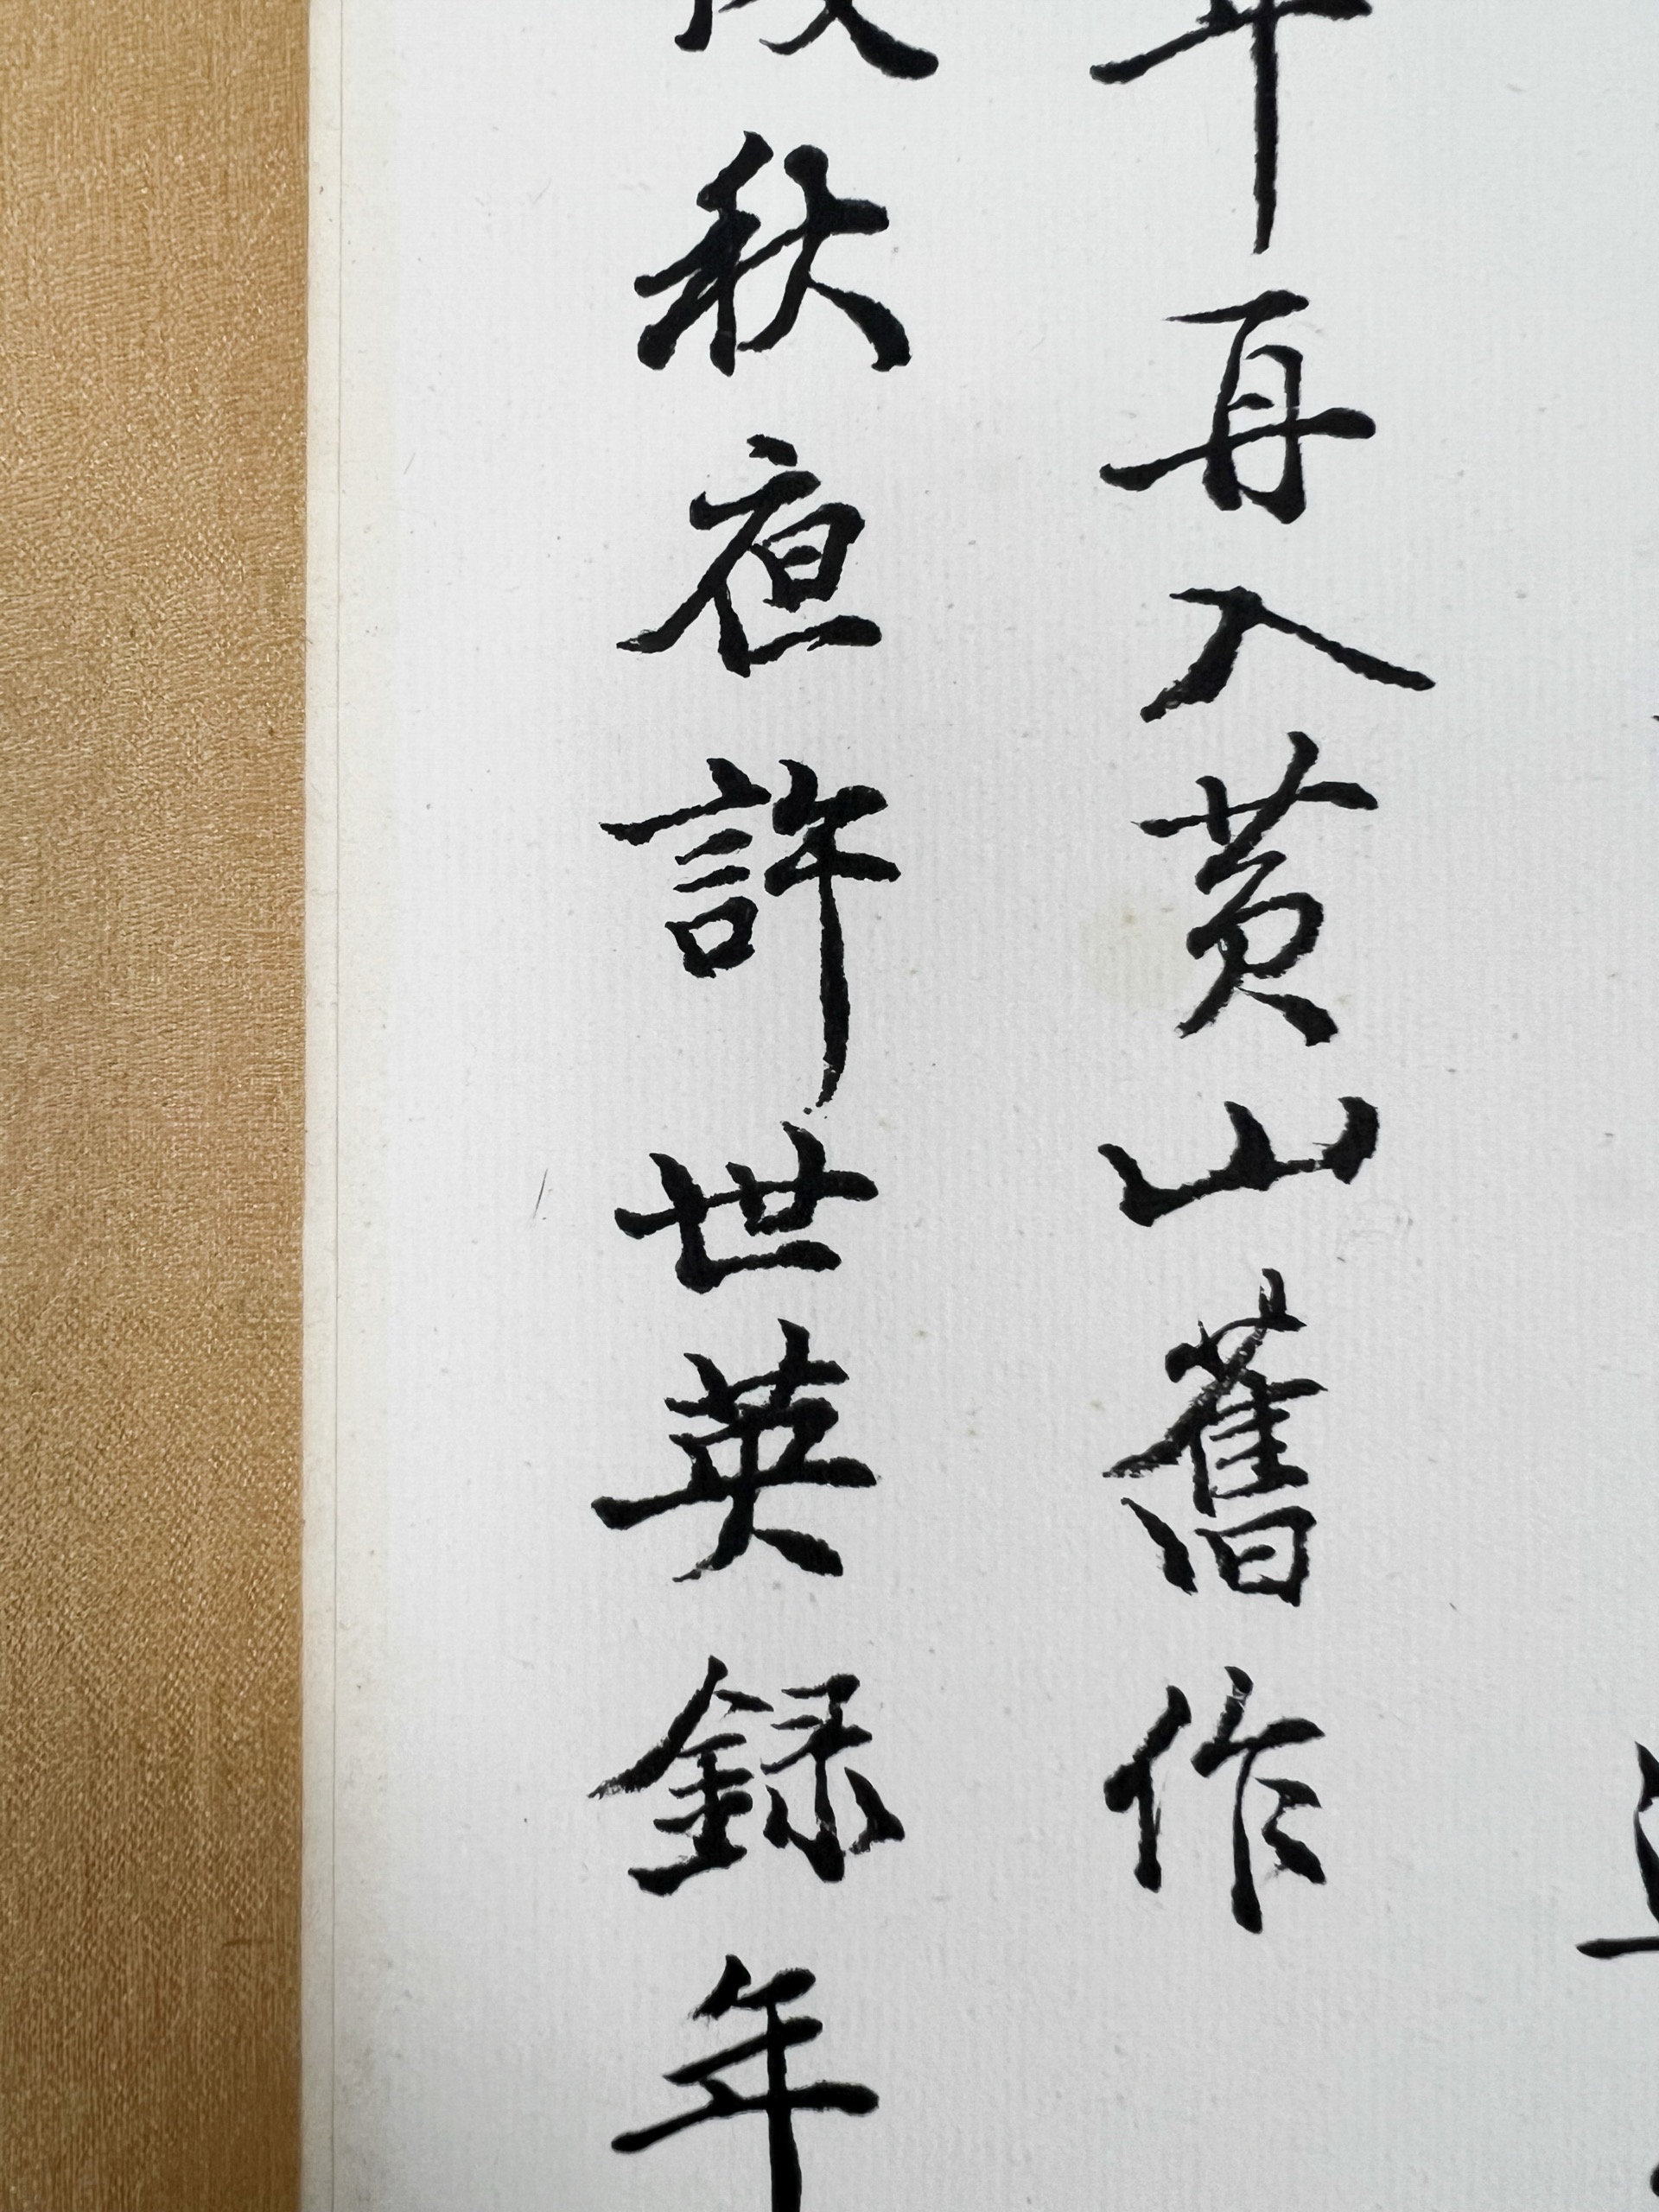 年再入黄山舊作
秋亱許世英録年